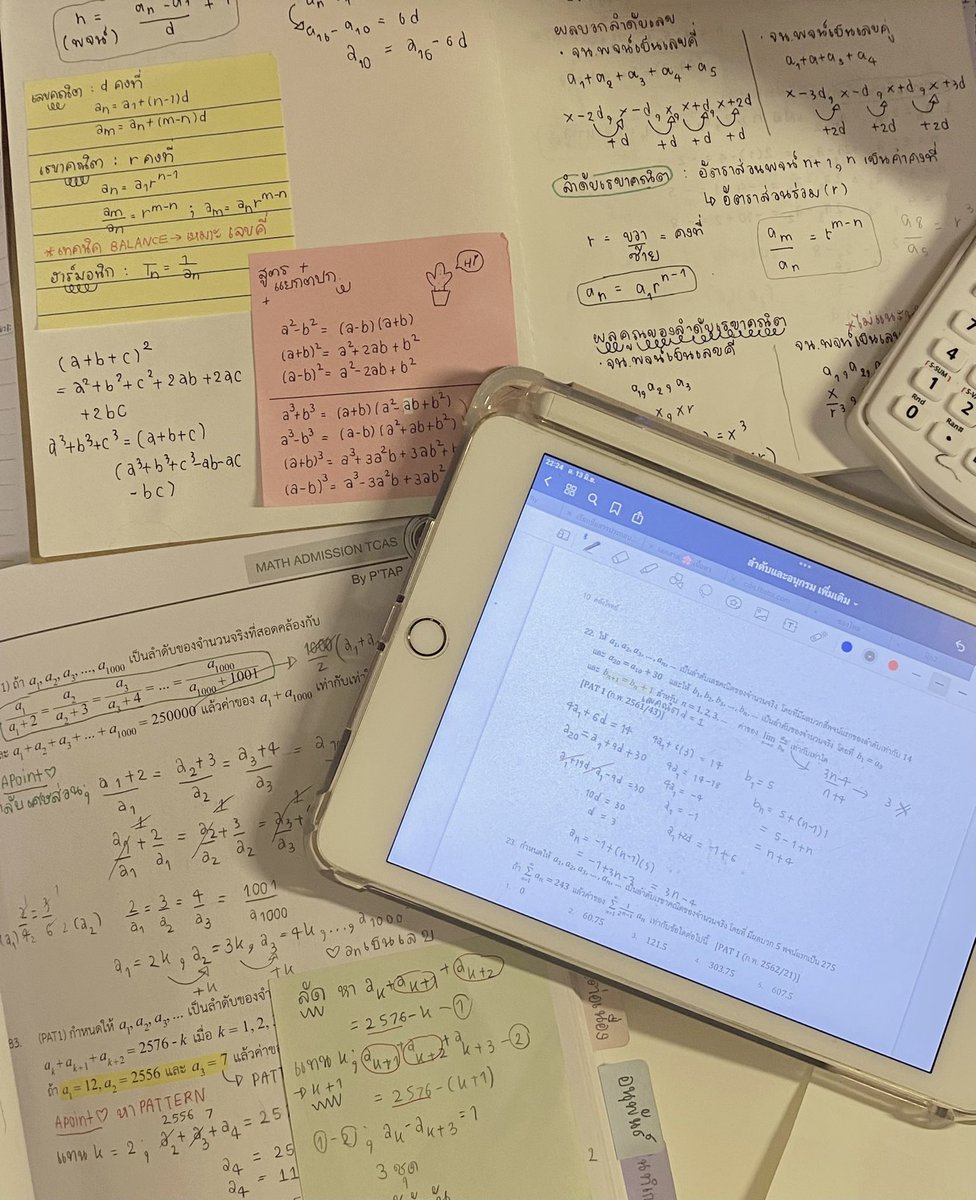 (พจน์)
a₁₆ - a₁₀ = 6d
a₁₀ = a₁₆ - 6d
เลขคณิต : d คงที่
aₙ = a₁+(n-1)d
aₘ = aₙ+(m-n)d
เรขาคณิต : r คงที่
aₙ = a₁rⁿ⁻¹
aₘ/aₙ = rᵐ⁻ⁿ ; aₘ = aₙrᵐ⁻ⁿ
*เทคนิค BALANCE → เหมาะ เลขคี่
ฮาร์มอนิก : Tₙ = 1/aₙ
(a+b+c)²
= a²+b²+c²+2ab+2ac
+2bc
a³+b³+c³ = (a+b+c)
(a³+b³+c³-ab-ac
-bc)
สูตร +
แยกตปก.
Hi!
a²-b² = (a-b)(a+b)
(a+b)² = a²+2ab+b²
(a-b)² = a²-2ab+b²
a³+b³ = (a+b)(a²-ab+b²)
a³-b³ = (a-b)(a²+ab+b²)
(a+b)³ = a³+3a²b+3ab²+
(a-b)³ = a³-3a²b+3ab²
ผลบวกลำดับเลข
• จน.พจน์เป็นเลขคี่
a₁+a₂+a₃+a₄+a₅
x-2d, x-d, x, x+d, x+2d
+d +d +d +d
• จน.พจน์เป็นเลขคู่
a₁+a+a₃+a₄
x-3d, x-d, x+d, x+3d
+2d +2d +2d
ลำดับเรขาคณิต : อัตราส่วนพจน์ n+1, n เป็นค่าคงที่
↳ อัตราส่วนร่วม (r)
r = ขวา/ซ้าย = คงที่
aₘ/aₙ = rᵐ⁻ⁿ
aₙ = a₁rⁿ⁻¹
ผลคูณของลำดับเรขาคณิต
• จน.พจน์เป็นเลขคี่
a₁, a₂, a₃
= x³
จน.พจน์เป็นเลข
MATH ADMISSION TCAS
By P'TAP
1) ถ้า a₁, a₂, a₃, ..., a₁₀₀₀ เป็นลำดับของจำนวนจริงที่สอดคล้องกับ
a₁/(a₁+2) = a₂/(a₂+3) = a₃/(a₃+4) = ... = a₁₀₀₀/(a₁₀₀₀+1001)
และ a₁+a₂+a₃+...+a₁₀₀₀ = 250000 แล้วค่าของ a₁+a₁₀₀₀ เท่ากับเท่า
APoint♡
กลับเศษส่วน; (a₁+2)/a₁ = (a₂+3)/a₂ = (a₃+4)/a₃ =
a₁/a₁ + 2/a₁ = a₂/a₂ + 3/a₂ = a₃/a₃ +
2/a₁ = 3/a₂ = 4/a₃ = 1001/a₁₀₀₀
a₁ = 2k, a₂ = 3k, a₃ = 4k, ..., a₁₀₀₀
+k +k
♡ aₙ เป็นเลข
83. (PAT1) กำหนดให้ a₁, a₂, a₃, ... เป็นลำดับของจำ
aₖ+aₖ₊₁+aₖ₊₂ = 2576-k เมื่อ k = 1, 2,
ถ้า a₁ = 12, a₂ = 2556 และ a₃ = 7 แล้วค่าข
↳ PATT
APoint♡ หา PATTERN
2556 7
แทน k = 2 ; a₂+a₃+a₄ = 25
a₄ = 25
a₄ = 11
ลัด หา aₖ+aₖ₊₁+aₖ₊₂
= 2576-k -①
แทน k ; aₖ₊₁+aₖ₊₂+aₖ₊₃ -②
→ k+1
= 2576-(k+1)
①-② ; aₖ-aₖ₊₃ = 1
3 ชุด
2
อนุพันธ์
22:24 อ. 13 มิ.ย.
ลำดับและอนุกรม เพิ่มเติม
22. ให้ a₁, a₂, a₃, ..., aₙ, ... เป็นลำดับเลขคณิตของจำนวนจริง โดยที่มีผลบวกสี่พจน์แรกของลำดับเท่ากับ 14
และ a₂₀ = a₁₀+30 และให้ b₁, b₂, b₃, ..., bₙ, ... เป็นลำดับของจำนวนจริง โดยที่ b₁ = a₃
และ bₙ₊₁ = bₙ+1 สำหรับ n = 1, 2, 3, ... ค่าของ lim เท่ากับเท่าใด
[PAT 1 (ก.พ. 2561/43)]
4a₁+6d = 14
a₂₀ = a₁+9d+30
a₁+19d-a₁-9d = 30
10d = 30
d = 3
4a₁+6(3) = 14
4a₁ = 14-18
4a₁ = -4
a₁ = -1
a₁+2d = -1+6
aₙ = -1+(n-1)(3)
= -1+3n-3 = 3n-4
b₁ = 5
bₙ = 5+(n-1)1
= 5-1+n
= n+4
(3n-4)/(n+4) → 3
23. กำหนดให้ a₁, a₂, a₃, ..., aₙ, ... เป็นลำดับเรขาคณิตของจำนวนจริง โดยที่ มีผลบวก 5 พจน์แรกเป็น 275
ถ้า ∑ aₙ = 243 แล้วค่าของ เท่ากับข้อใดต่อไปนี้ [PAT 1 (ก.พ. 2562/21)]
1. 0
2. 60.75
3. 121.5
4. 303.75
5. 607.5